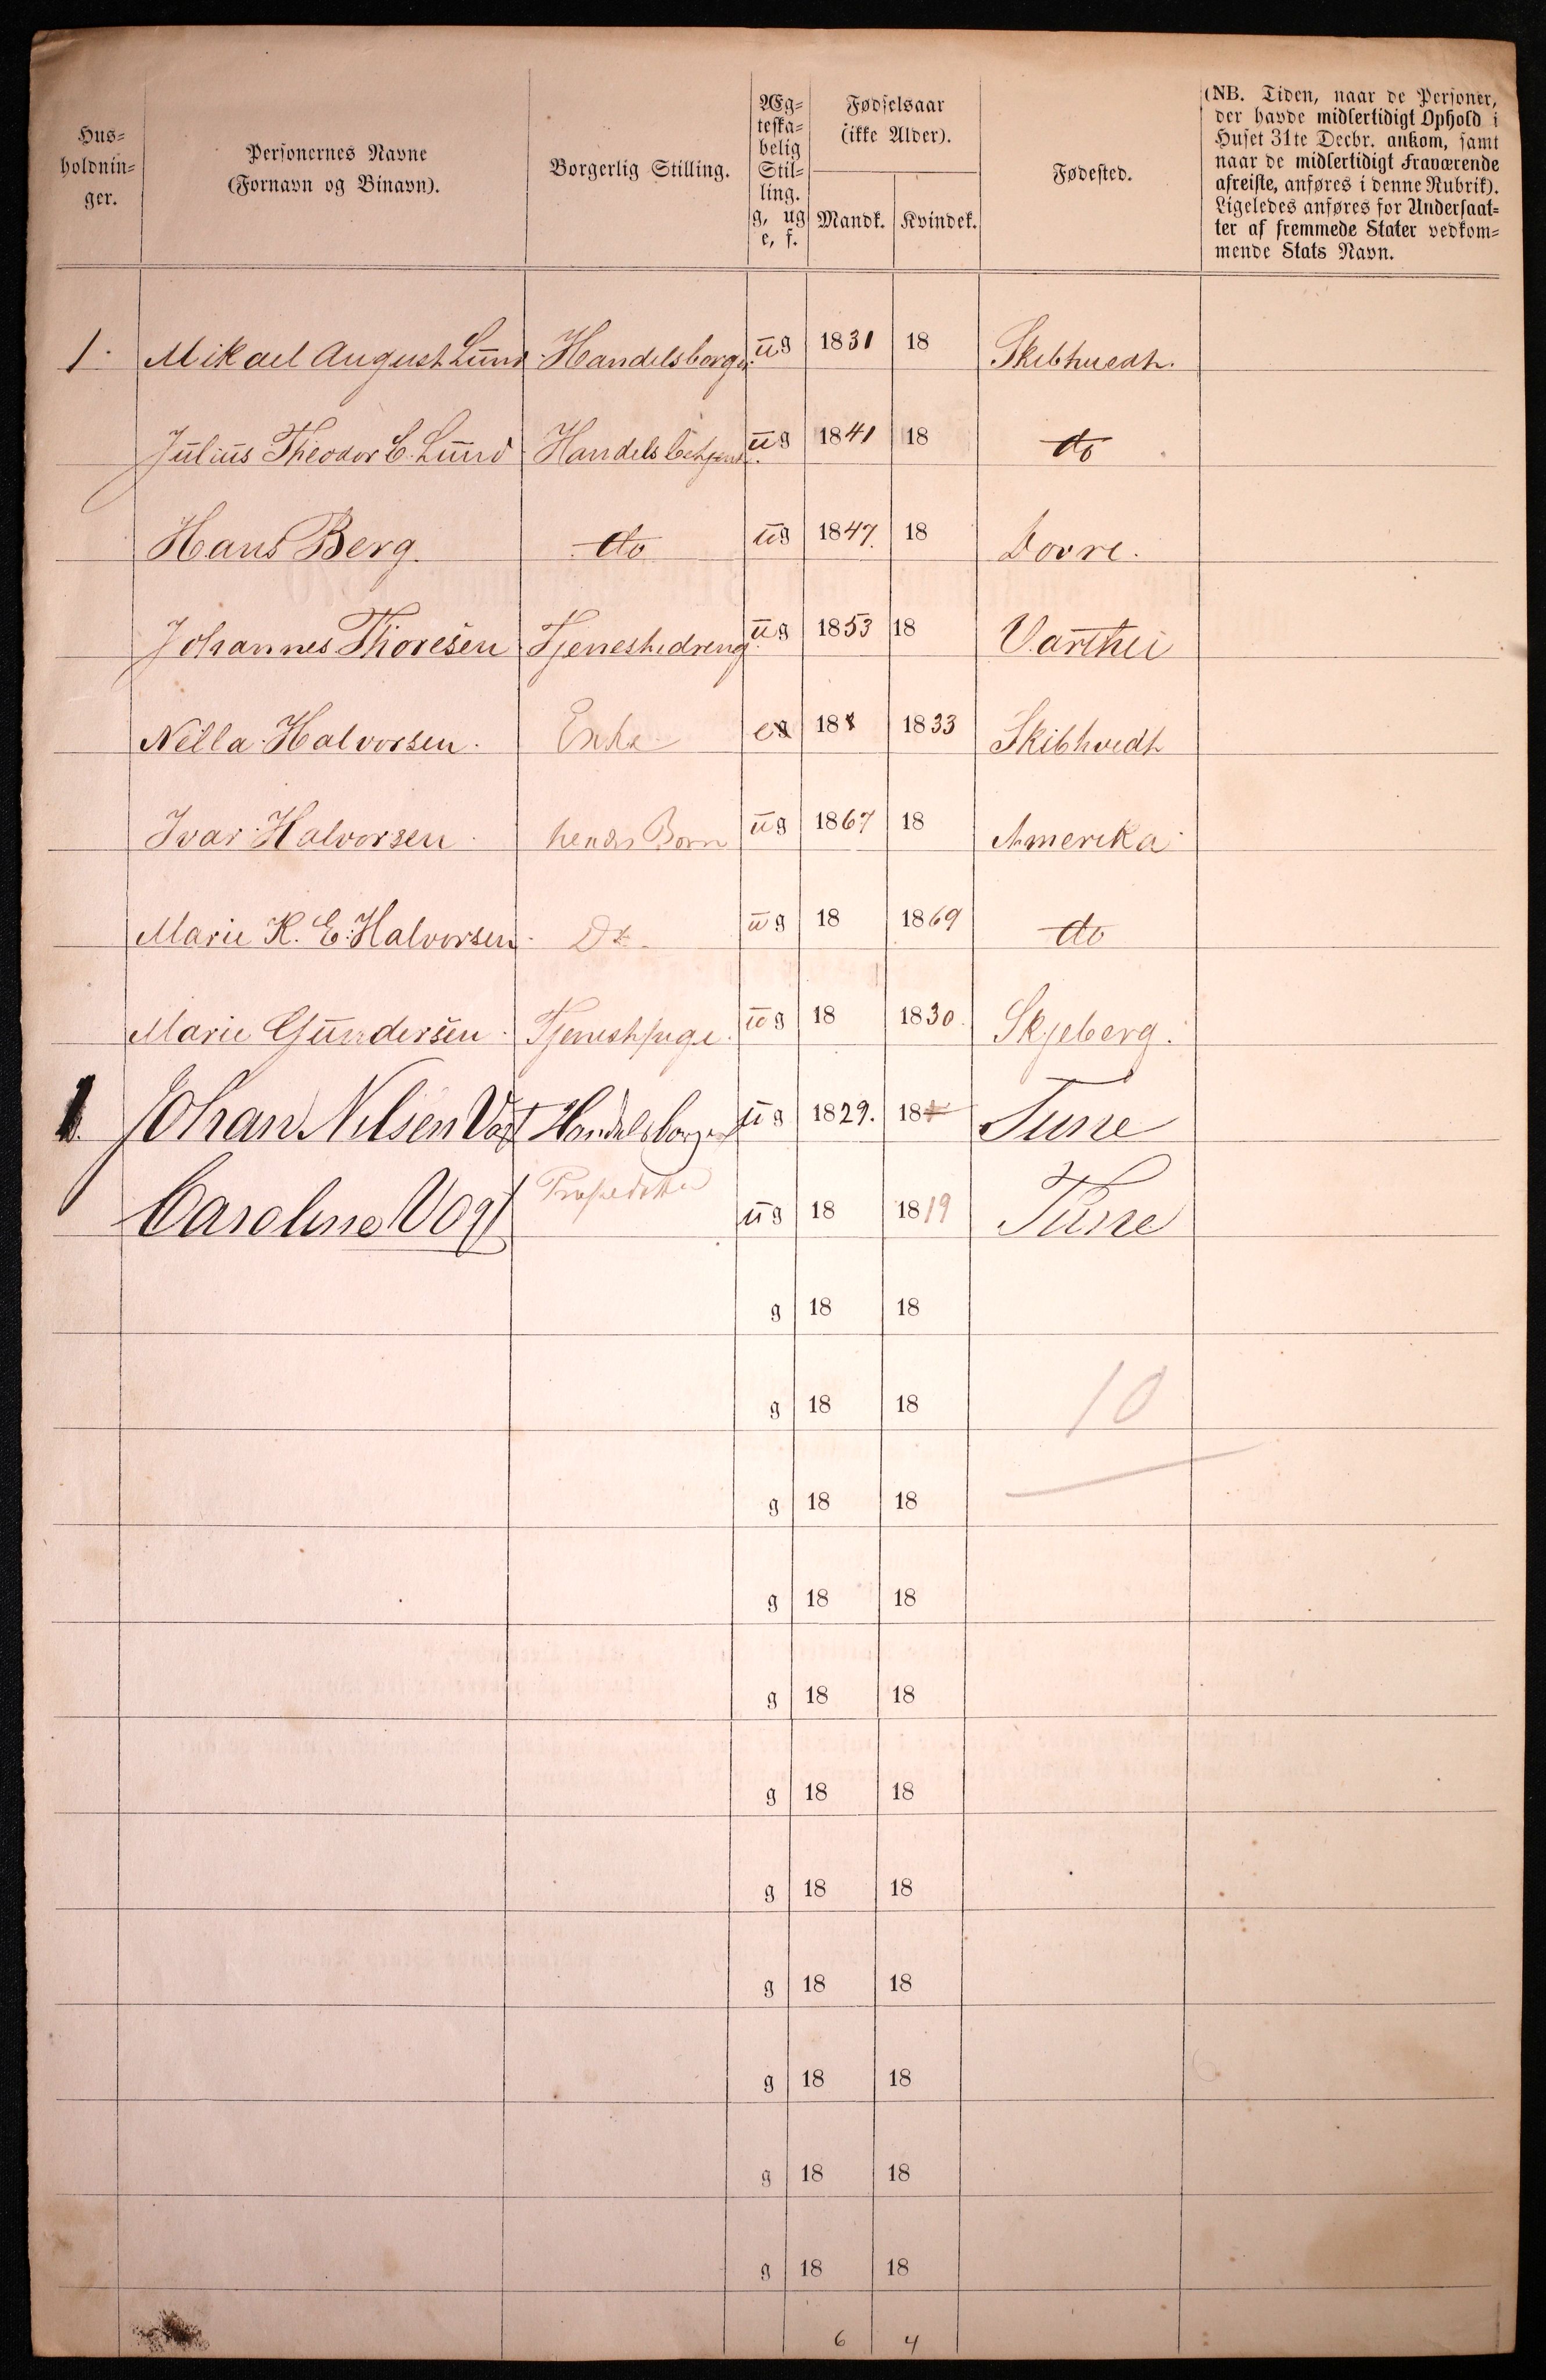 Hus-
holdnin-
ger.
Personernes Navne
(Fornavn og Binavn).
Borgerlig Stilling.
Æg-
teska-
belig
Stil-
ling.
g, ug
e, f.
Fødselsaar
(ikke Alder).
Mandk. Kvindek.
Fødested.
(NB. Tiden, naar de Personer,
der havde midlertidigt Ophold i
Huset 31te Decbr. ankom, samt
naar de midlertidigt Fraværende
afreiste, anføres i denne Rubrik).
Ligeledes anføres for Undersaat-
ter af fremmede Stater vedkom-
mende Stats Navn.
1. Mikael August Lund Handelsborger ug 1831 18 Skibhvedt.
Julius Theodor C. Lund Handelsbetjent ug 1841 18 do
Hans Berg. do ug 1847. 18 Dovre.
Johannes Thoresen Tjenestedreng ug 1853 18 Varthei
Nella Halvorsen. Enke e 18 1833 Skibhvedt
Ivar Halvorsen hendes Børn ug 1867 18 Amerika
Marie K. E. Halvorsen Do ug 18 1869 do
Marie Gundersen Tjenestpige. ug 18 1830. Skjeberg.
1. Johan Nilsen Vogt Handelsborger ug 1829. 18 Tune
Caroline Vogt ug 18 1819 Tune
g 18 18
g 18 18 10
g 18 18
g 18 18
g 18 18
g 18 18
g 18 18
g 18 18
g 18 18
g 18 18
g 18 18
6 4